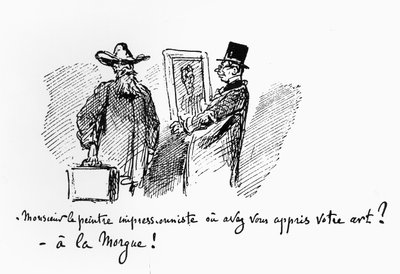 - Monsieur le peintre impressionniste où avez vous appris votre art ?
- à la Morgue !